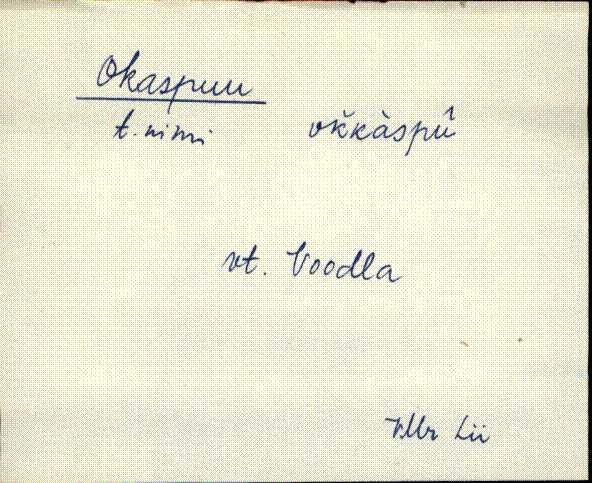 Okaspuu
t. nimi okkàspû
vt. Voodla
Lii